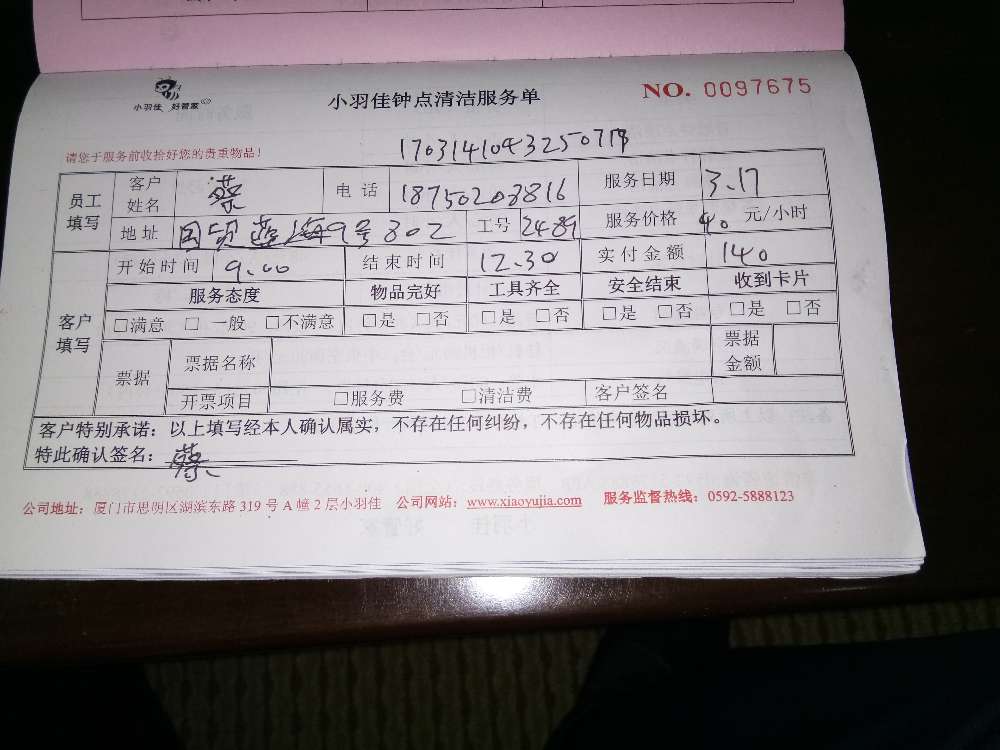 小羽佳 好管家
小羽佳钟点清洁服务单
NO. 0097675
请您于服务前收拾好您的贵重物品!
员工填写 客户姓名 蔡 电话 18750208816 服务日期 3.17
地址 国贸蓝海9号802 工号 2489 服务价格 40 元/小时
客户填写 开始时间 9.00 结束时间 12.30 实付金额 140
服务态度 物品完好 工具齐全 安全结束 收到卡片
□满意 □一般 □不满意 □是 □否 □是 □否 □是 □否 □是 □否
票据 票据名称 票据金额
开票项目 □服务费 □清洁费 客户签名
客户特别承诺:以上填写经本人确认属实,不存在任何纠纷,不存在任何物品损坏。
特此确认签名:蔡
公司地址:厦门市思明区湖滨东路 319 号 A 幢 2 层小羽佳 公司网站:www.xiaoyujia.com 服务监督热线:0592-5888123